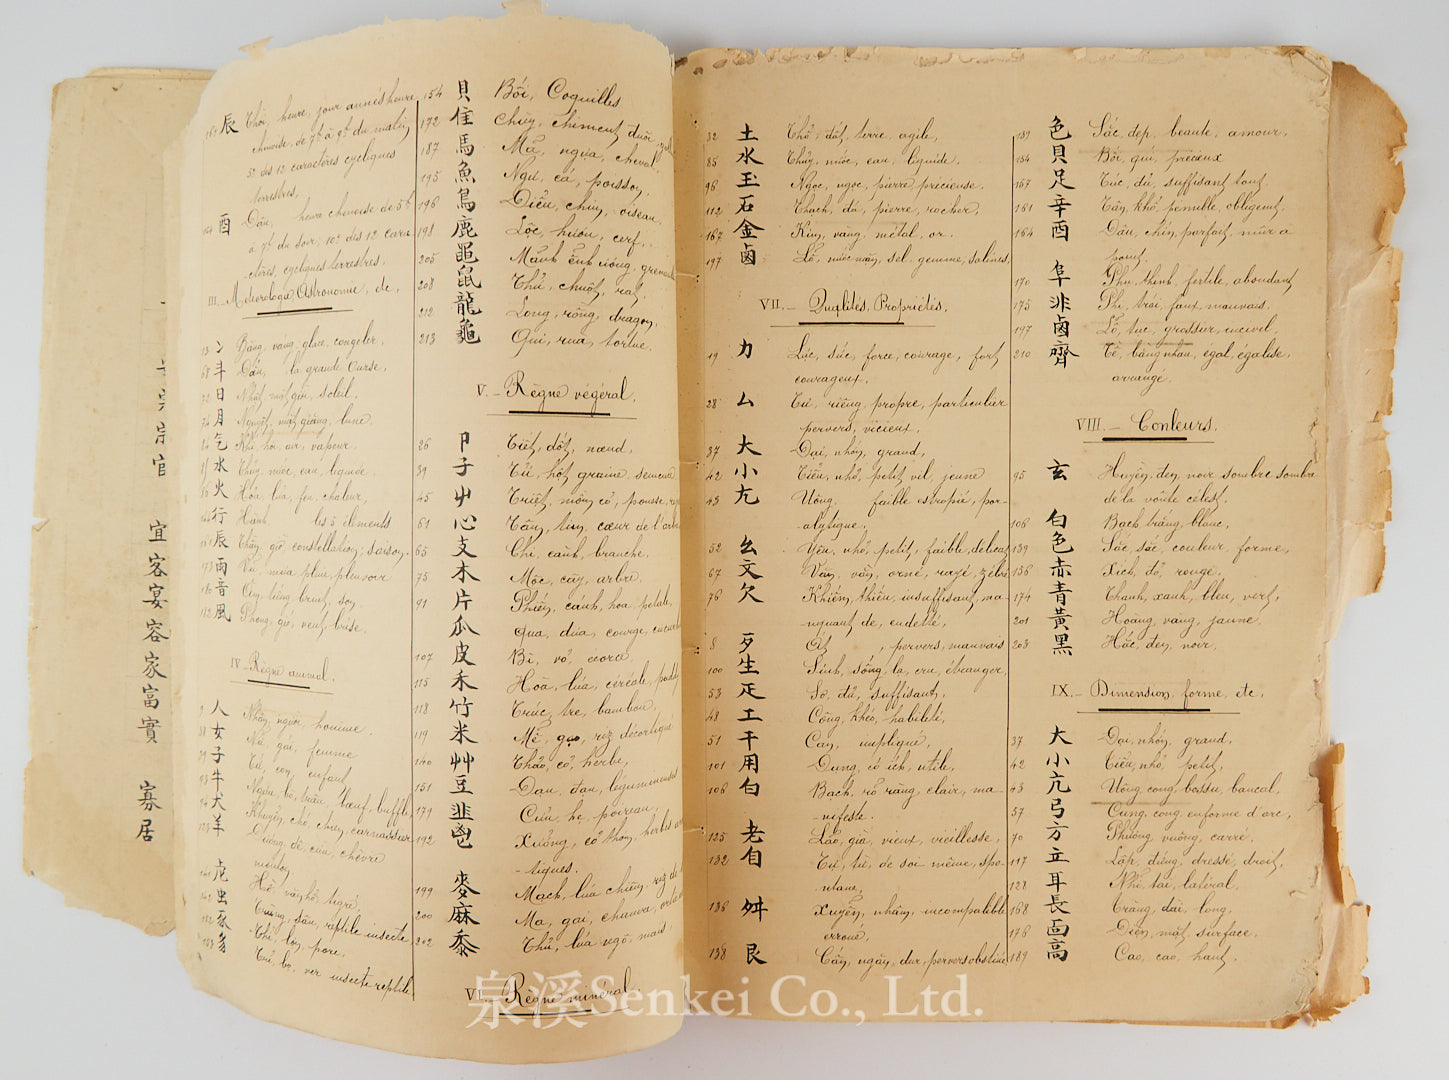 163 辰 Thôi, heure, jour, années heure
chinoise, de 7h à 9h du matin
5e des 12 caractères cycliques
terrestres,
164 酉 Dậu, heure chinoise de 5h
à 7h du soir, 10e des 12 cara
ctères, cycliques terrestres.
III._ Météorologie Astronomie, etc,
15 冫 Băng, vang, glace, congeler,
68 斗 Đẩu, la grande Ourse,
72 日 Nhật, mặt giời, soleil,
74 月 Nguyệt, mặt giăng, lune,
84 气 Khí, hơi, air, vapeur,
85 水 Thủy, nước, eau, liquide,
86 火 Hỏa, lửa, feu, chaleur,
行 Hành les 5 éléments
辰 Thần, giờ, constellation, saison,
雨 Vũ, mưa, pluie, pleuvoir
音 Âm, tiếng, bruit, son,
風 Phong, gió, vent, brise,
IV._ Règne animal.
9 人 Nhân, người, homme,
38 女 Nữ, gái, femme
39 子 Tử, con, enfant,
93 牛 Ngưu, bò, trâu, bœuf, buffle,
94 犬 Khuyển, chó, chien, carnassier
123 羊 Dương, dê, cừu, chèvre
mouton,
141 虍 Hô, vằn, hổ, tigre,
142 虫 Trùng, sâu, reptile insecte
152 豕 Thỉ, lợn, porc,
153 豸 Trĩ, bọ, ver insecte reptile
154 貝 Bối, Coquilles
172 隹 Chủy, chim cụt đuôi
187 馬 Mã, ngựa, cheval,
195 魚 Ngư, cá, poisson,
196 鳥 Điểu, chim, oiseau,
198 鹿 Lộc, hươu, cerf,
205 黽 Mãnh, ễnh ương, grenouille
208 鼠 Thử, chuột, rat,
212 龍 Long, rồng, dragon,
213 龜 Qui, rùa, tortue,
V._ Règne végéral.
26 卩 Tiết, đốt, nœud,
39 子 Tử, hột, graine, semence
45 屮 Triệt, mồn cỏ, pousse,
61 心 Tâm, tim, cœur de l'arbre
65 支 Chi, cành, branche,
75 木 Mộc, cây, arbre,
91 片 Phiến, cánh, hoa, pétale,
瓜 Qua, dưa, courge,
107 皮 Bì, vỏ, écorce,
115 禾 Hòa, lúa, céréale, paddy
118 竹 Trúc, tre, bambou,
119 米 Mễ, gạo, riz décortiqué
140 艸 Thảo, cỏ, herbe,
151 豆 Đậu, đậu, légumineuses
179 韭 Cửu, hẹ, poireau,
192 鬯 Xưởng, cỏ thơm, herbes aro
- tiques.
199 麥 Mạch, lúa chiêm, riz de
200 麻 Ma, gai, chanvre,
202 黍 Thử, lúa ngô, maïs,
VI._ Règne minéral.
32 土 Thổ, đất, terre, agile,
85 水 Thủy, nước, eau, liquide,
96 玉 Ngọc, ngọc, pierre précieuse,
112 石 Thạch, đá, pierre, rocher,
167 金 Kim, vàng, métal, or,
197 鹵 Lỗ, nước mặn, sel-gemme, salines,
VII._ Qualités, Propriétés,
19 力 Lực, sức, force, courage, fort
courageux,
28 厶 Tư, riêng, propre, particulier
pervers, vicieux,
37 大 Đại, nhớn, grand,
42 小 Tiểu, nhỏ, petit, vil, jeune
43 尢 Uông, faible estropié, par-
alytique,
52 幺 Yêu, nhỏ, petit, faible, délicat
67 文 Văn, vằn, orné, rayé, zébré
76 欠 Khiếm, thiếu, insuffisant, ma-
nquant de, endetté,
8 歹 Ợt, pervers, mauvais
100 生 Sinh, sống, la, cru, étranger,
53 疋 Sơ, đủ, suffisant,
48 工 Công, khéo, habileté,
51 干 Can, impliqué,
101 用 Dụng, có ích, utile,
106 白 Bạch, rõ ràng, clair, ma-
- nifeste.
125 老 Lão, già, vieux, vieillesse,
132 自 Tự, từ, de soi-même, spo-
ntané,
136 舛 Xuyễn, nhầm, incompatible
erroné,
138 艮 Cấn, ngăn, dur, pervers obstiné
139 色 Sắc, đẹp, beauté, amour,
154 貝 Bối, quí, précieux
157 足 Túc, đủ, suffisant, tout,
161 辛 Tân, khổ, pénible, obligeant,
164 酉 Dậu, chín, parfait, mûr à
point,
170 阜 Phụ, thịnh, fertile, abondant
175 非 Phi, trái, faux, mauvais,
197 鹵 Lỗ, tục, grossier, incivil,
210 齊 Tề, bằng nhau, égal, égalisé,
arrangé,
VIII._ Couleurs.
95 玄 Huyền, đen, noir, sombre, sombre
de la voûte célest.
106 白 Bạch, trắng, blanc,
139 色 Sắc, sắc, couleur, forme,
136 赤 Xích, đỏ, rouge,
174 青 Thanh, xanh, bleu, vert,
201 黃 Hoàng, vàng, jaune,
203 黑 Hắc, đen, noir,
IX._ Dimension, forme, etc,
37 大 Đại, nhớn, grand,
42 小 Tiểu, nhỏ, petit,
43 尢 Uông, cong, bossu, bancal,
57 弓 Cung, cong, en forme d'arc,
70 方 Phương, vuông, carré,
117 立 Lập, đứng, dressé, droit,
128 耳 Nhĩ, tai, latéral,
168 長 Tràng, dài, long,
176 面 Diện, mặt, surface,
189 高 Cao, cao, haut,
宜客宴容家富實 寡居
泉溪Senkei Co., Ltd.